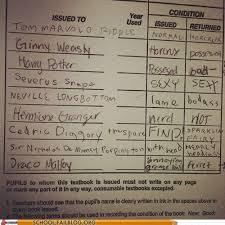 ISSUED TO Year Used CONDITION
ISSUED RETURNED
TOM MARVOLO RIDDLE NORMAL HORCRUX
Ginny Weasly Horcrux possessed
Harry Potter Possessed bad
Severus Snape SEXY SEXY
NEVILLE LONGBOTTOM lame badass
Hermione Granger nerd HOT
Cedric Diggory FIND SPARKLIN FAIRY
Sir Nicholas De Mimsy Porpington with head NEARLY HEADLESS
Draco Malfoy Ferret
PUPILS to whom this textbook is issued must not write on any page
or mark any part of it in any way, consumable textbooks excepted.
1. Teachers should see that the pupil's name is clearly written in ink in the spaces above in
every book issued.
2. The following terms should be used in recording the condition of the book: New; Good;
SCHOOLFAILBLOG.ORG